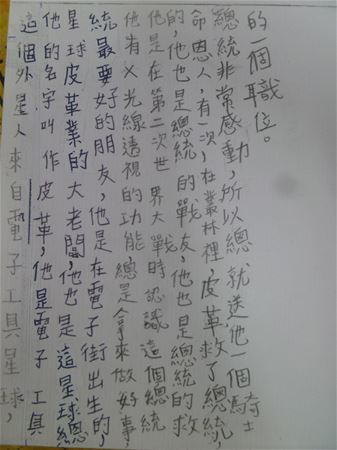 這個外星人來自電子工具星球,
他的名字叫作皮革,他是電子工具
星球皮革業的大老闆,他也是這星球總
統最要好的朋友,他是在電子街出生的,
他有X光線透視的功能總是拿來做好事
他是在第二次世界大戰時認識這個總統
的,他也是總統的戰友,他也是總統的救
命恩人,有一次,在叢林裡,皮革救了總統,
總統非常感動,所以總就送他一個騎士
的個職位。